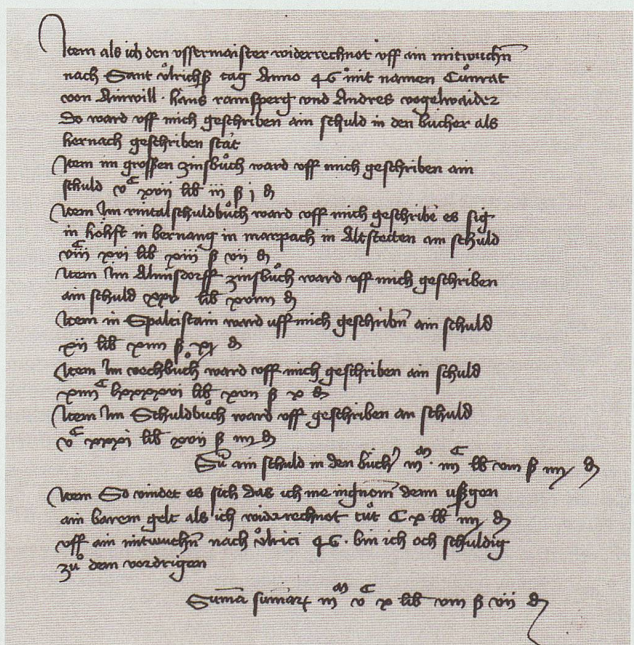 Item als ich den ussermaister widerrechnot uff ain mitwuchn̄
nach Sant Ůlrichß tag Anno 46 mit namen Cůnrat
von Ainwill · Hans ramsperg vnd Andres vogelwaider
Do ward uff mich geschriben ain schuld in den bücher als
hernach geschriben stat
Item im grossen zinsbůch ward uff mich geschriben ain
schuld vᶜ xvii lib iii ß j d
Item Im rintalschuldbůch ward uff mich geschribē es sig
in höhst in bernang in marpach in Altstetten ain schuld
xvi lib xiii ß vii d
Item Im Almisdorff zinsbůch ward uff mich geschriben
ain schuld xxv lib xviii d
Item in Spaltistain ward uff mich geschribn̄ ain schuld
xii lib xiiii ß xj d
Item Im wechbůch ward uff mich geschriben ain schuld
lxxxxvi lib xvii ß x d
Item Im Schuldbůch ward uff geschriben an schuld
vᶜ xxxi lib xvii ß iii d
Sū ain schuld in den büch iiiᵐ · iiiᶜ lib viii ß iiij d
Item So vindet es sich das ich me ingnom denn ußgen
ain barem gelt als ich widerrechnot tůt C x lib iiij d
uff ain mitwuchn̄ nach Ůlrici 46 · bin ich och schuldig
zů dem vordrigen
Suma sumarᶻ iiiᵐ vᶜ x lib viii ß vii d